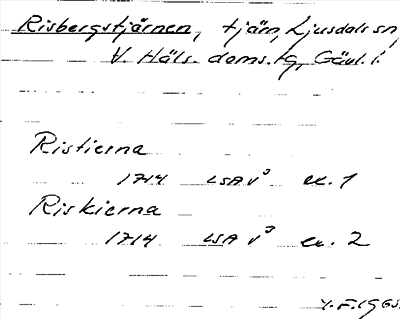 Risbergstjärnen, tjärn, Ljusdals sn,
V. Häls. doms.tg, Gävl. l.
Ristierna
1714 LSA V³ ex. 1
Riskierna
1714 LSA V³ ex. 2
Y.F. 1965